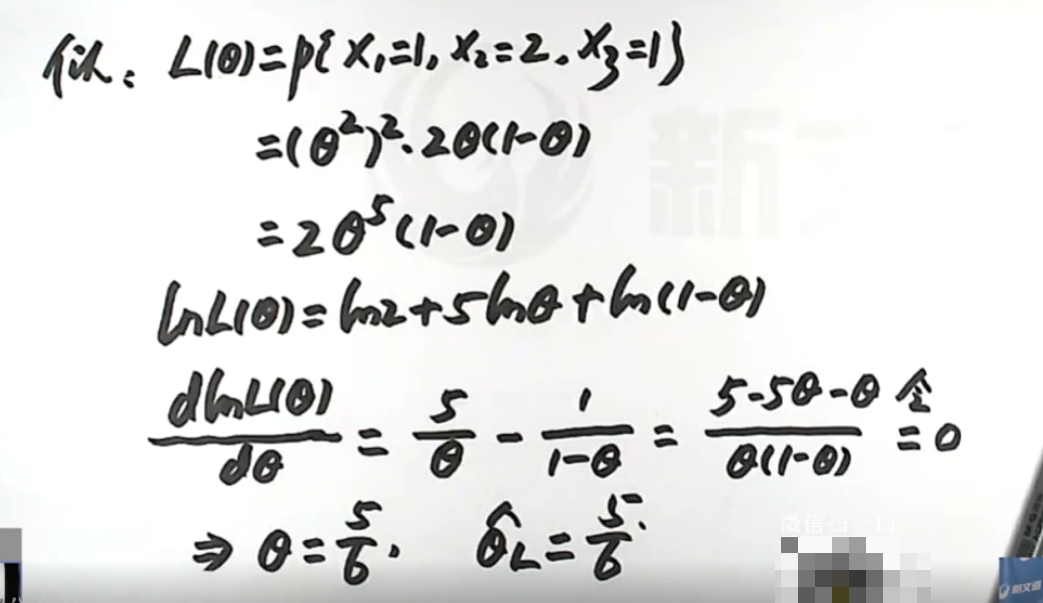 似: L(θ)=p{X₁=1, X₂=2, X₃=1}
=(θ²)²·2θ(1-θ)
=2θ⁵(1-θ)
lnL(θ)=ln2+5lnθ+ln(1-θ)
dlnL(θ)/dθ = 5/θ - 1/(1-θ) = (5-5θ-θ)/(θ(1-θ)) 令= 0
⇒ θ=5/6, θ̂L=5/6.
新
微信扫一扫
新文道